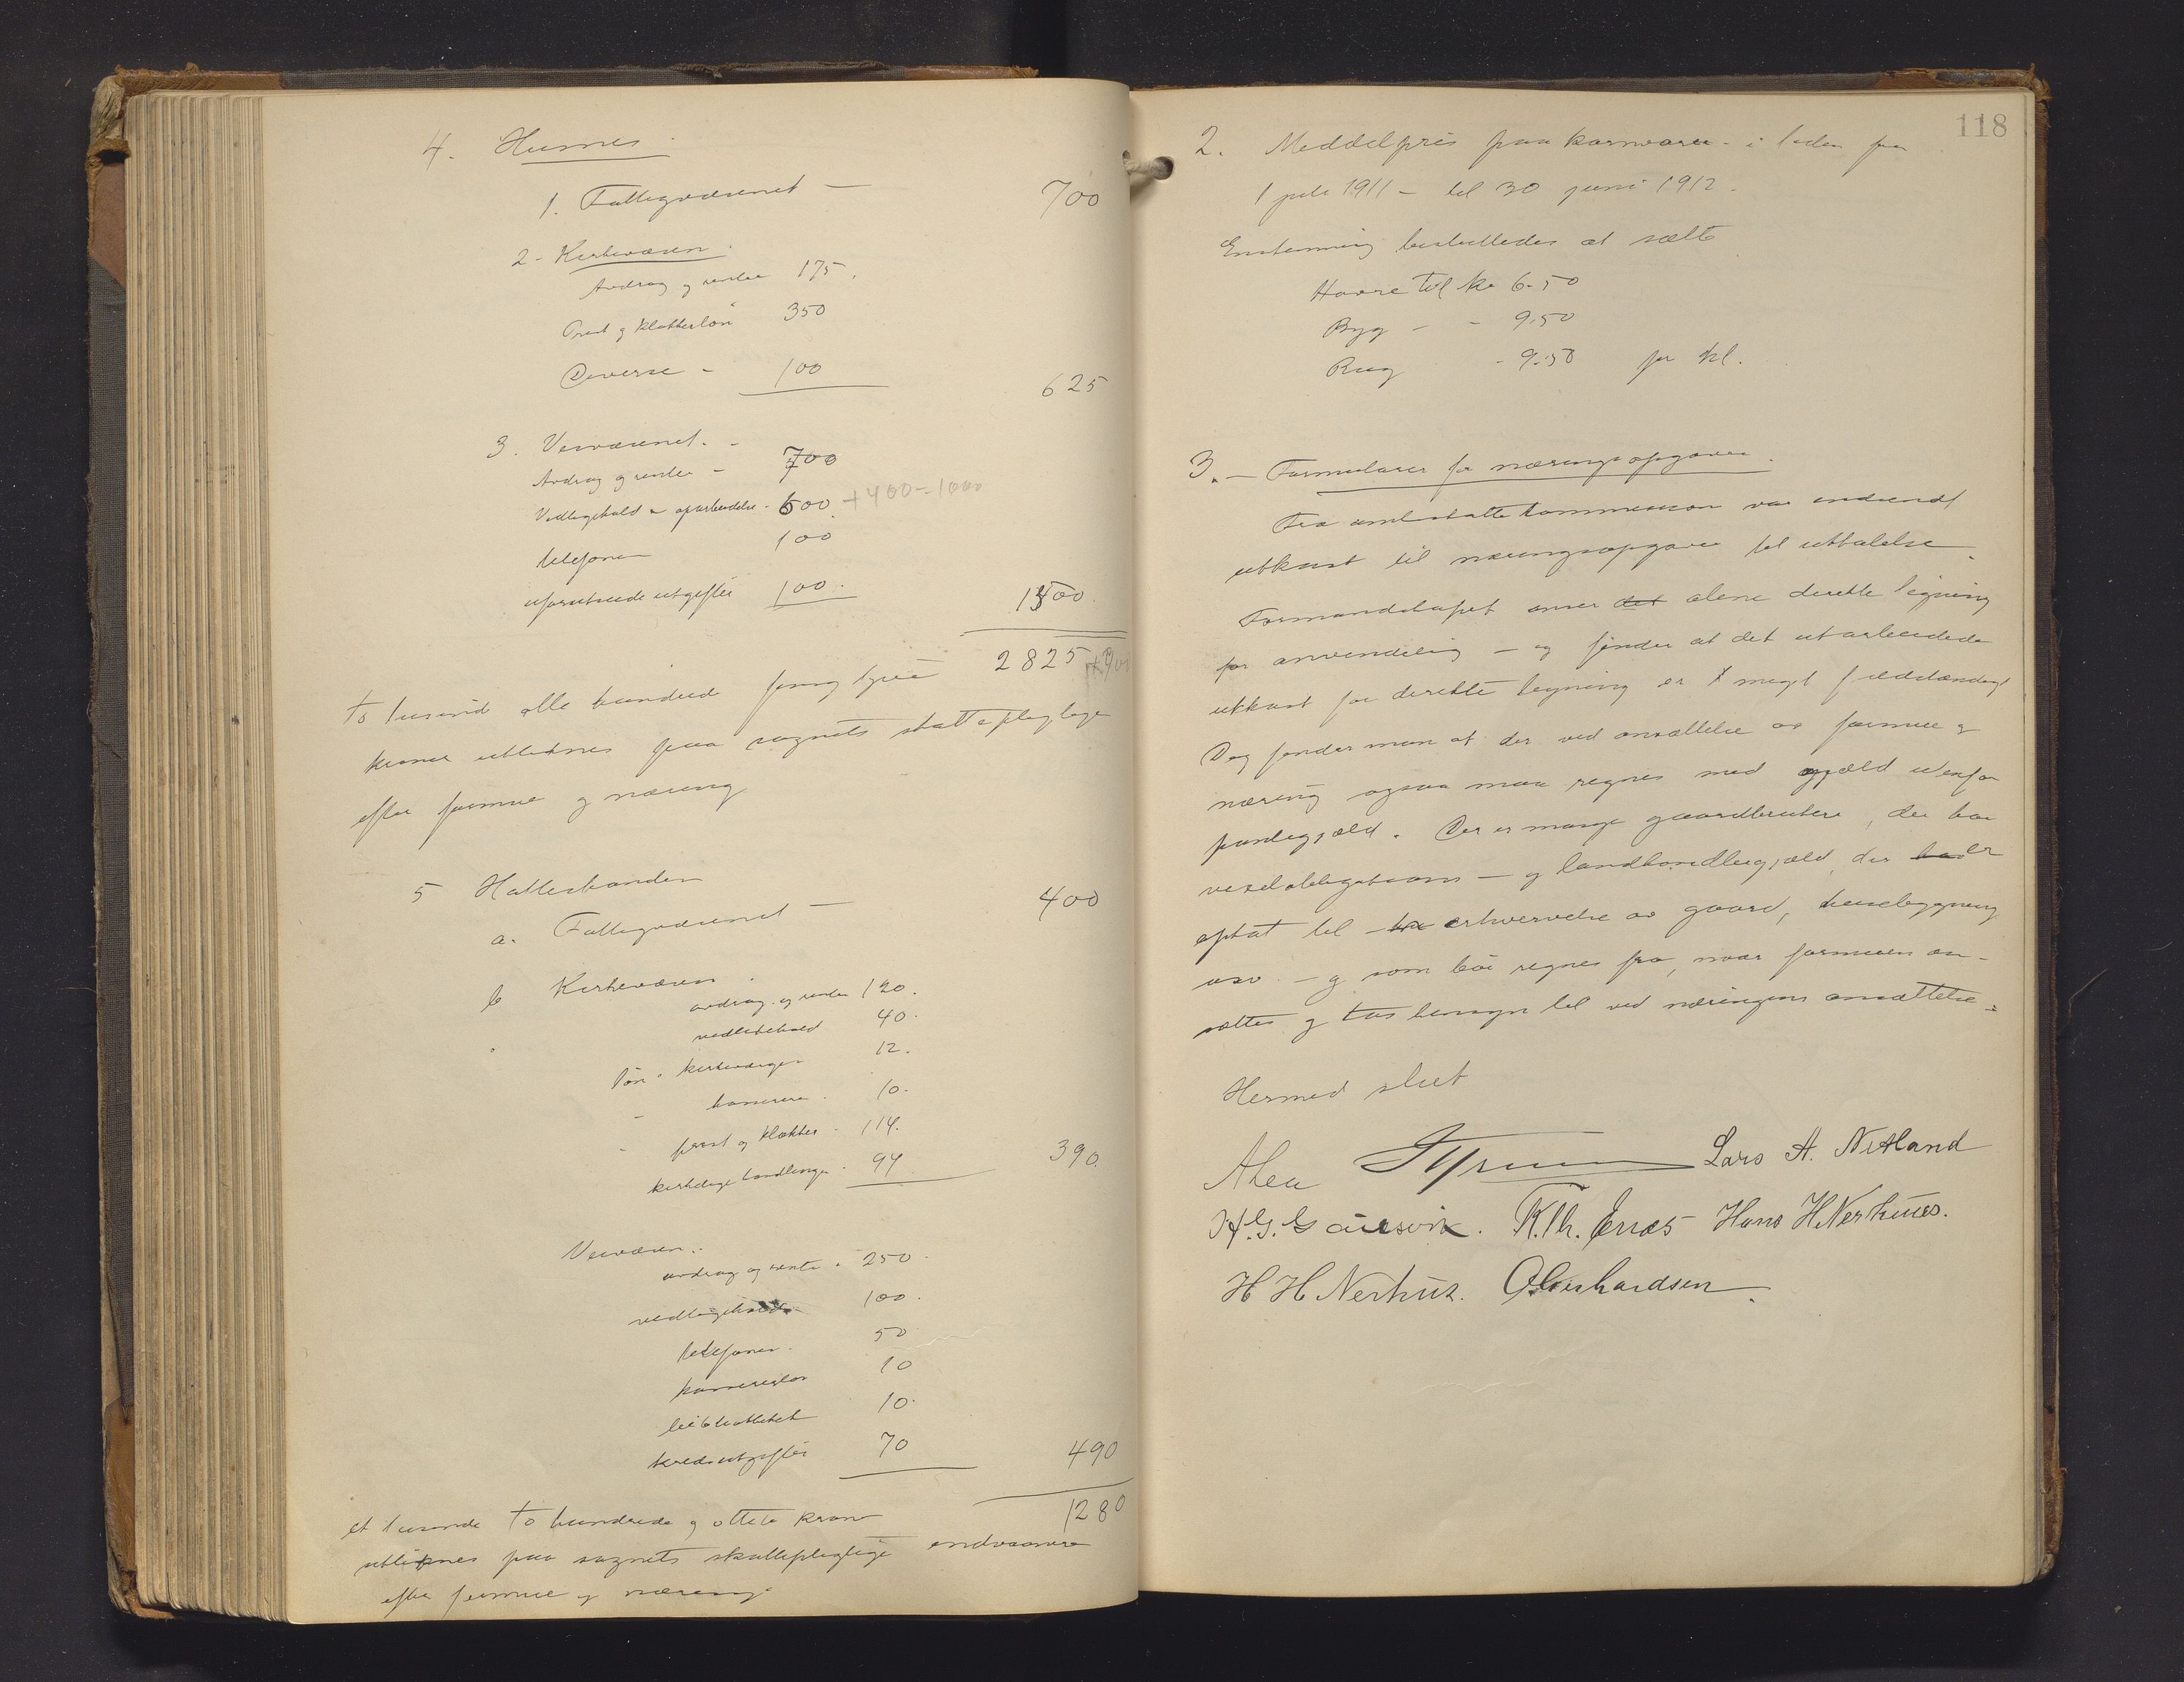 4. Husnes
1. Fattigvæsenet — 700
2 - Kirkevæsen.
Avdrag og renter 175.
Prest og klokkerløn 350
Diverse - 100
625
3. Veivæsenet. -
Avdrag og renter - 700
Vedlikehold og oparbeidelse - 600. + 400 = 1000
telefoner 100
uforutseede utgifter 100.
1500.
2825
to tusind otte hundrede femogtyve
kroner utliknes paa sognets skattepligtige
efter formue og næring
5 Hatlestranden
a. Fattigvæsenet — 400
b Kirkevæsen.
avdrag og renter 120.
vedlikehold 40.
løn - kirkeværger 12.
- kasserer. 10.
- prest og klokker - 114.
kirkelige handlinger. 94
390.
Veivæsen:
avdrag og rente. 250.
vedlikehold 100.
telefoner. 50
kassererløn 10
10.
kredsutgifter 70
490
1280
et tusinde to hundrede og otteti kroner
utliknes paa sognets skattepligtige indvaanere
efter formue og næring.
118
2. Middelpris paa kornvarer i tiden fra
1 juli 1911 - til 30 juni 1912.
Enstemmig besluttedes at sætte
Havre til kr 6.50
Byg - - 9.50
Rug - 9.50 pr hl.
3. — Formularer for næringsopgaver.
Fra amtsskattekommission var indsendt
utkast til næringsopgaver til uttalelse.
Formandskapet anser det alene direkte ligning
for anvendelig — og finder at det utarbeidede
utkast for direkte ligning er meget fuldstændigt
Dog finder man at der ved ansættelse av formue og
næring ogsaa maa regnes med gjæld utenfor
pantegjæld. Der er mange gaardbrukere, der har
vexelobligations — og landhandlergjæld, der har er
optat til erhvervelse av gaard, husebygning
usv. — og som bør regnes fra, naar formuen an-
sættes og tas hensyn til ved næringens ansættelse.
Hermed slut
Lars A. Netland
H. G. Gausvik. K. Th. Enæs Hans H. Nerhuus.
H H Nerhus. O Gerhardsen.